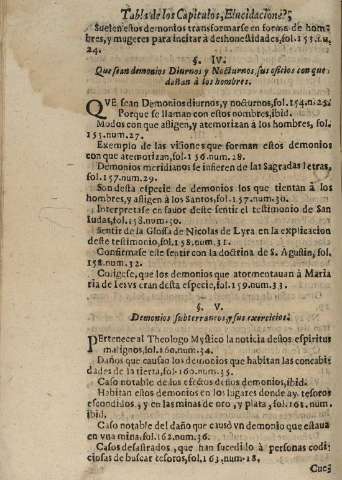 Tabla de los Capitulos, Elucidacione?;
Suelen estos demonios transformarse en forma de hom-
bres, y mugeres para incitar à deshonestidades, fol. 151. n.
24.
§. IV.
Que sean demonios Diurnos y Nocturnos sus oficios con que
dañan à los hombres.
QVE sean Demonios diurnos, y nocturnos, fol. 154. n. 25.
Porque se llaman con estos nombres, ibid.
Modos con que afligen, y atemorizan à los hombres, fol.
155. num. 27.
Exemplo de las visiones que forman estos demonios
con que atemorizan, fol. 156. num. 28.
Demonios meridianos se infieren de las Sagradas letras,
fol. 157. num. 29.
Son desta especie de demonios los que tientan à los
hombres, y afligen à los Santos, fol. 157. num. 30.
Interpretase en fauor deste sentir el testimonio de San
Iudas, fol. 158. num. 30.
Sentir de la Glossa de Nicolas de Lyra en la explicacion
deste testimonio, fol. 158. num. 31.
Confirmase este sentir con la doctrina de S. Agustin, fol.
158. num. 32.
Coligese, que los demonios que atormentauan à Maria
ria de Iesvs eran desta especie, fol. 159. num. 33.
§. V.
Demonios subterraneos, y sus exercicios.
PErtenece al Theologo Mystico la noticia destos espiritus
malignos, fol. 160. num. 34.
Daños que causan los demonios que habitan las concabi-
dades de la tierra, fol. 160. num. 35.
Caso notable de los efectos destos demonios, ibid.
Habitan estos demonios en los lugares donde ay tesoros
escondidos, y en las minas de oro, y plata, fol. 161. num.
ibid.
Caso notable del daño que causò vn demonio que estaua
en vna mina. fol. 162. num. 36.
Casos desastrados, que han sucedido à personas codi-
ciosas de buscar tesoros, fol. 163. num. 18.
Cuej